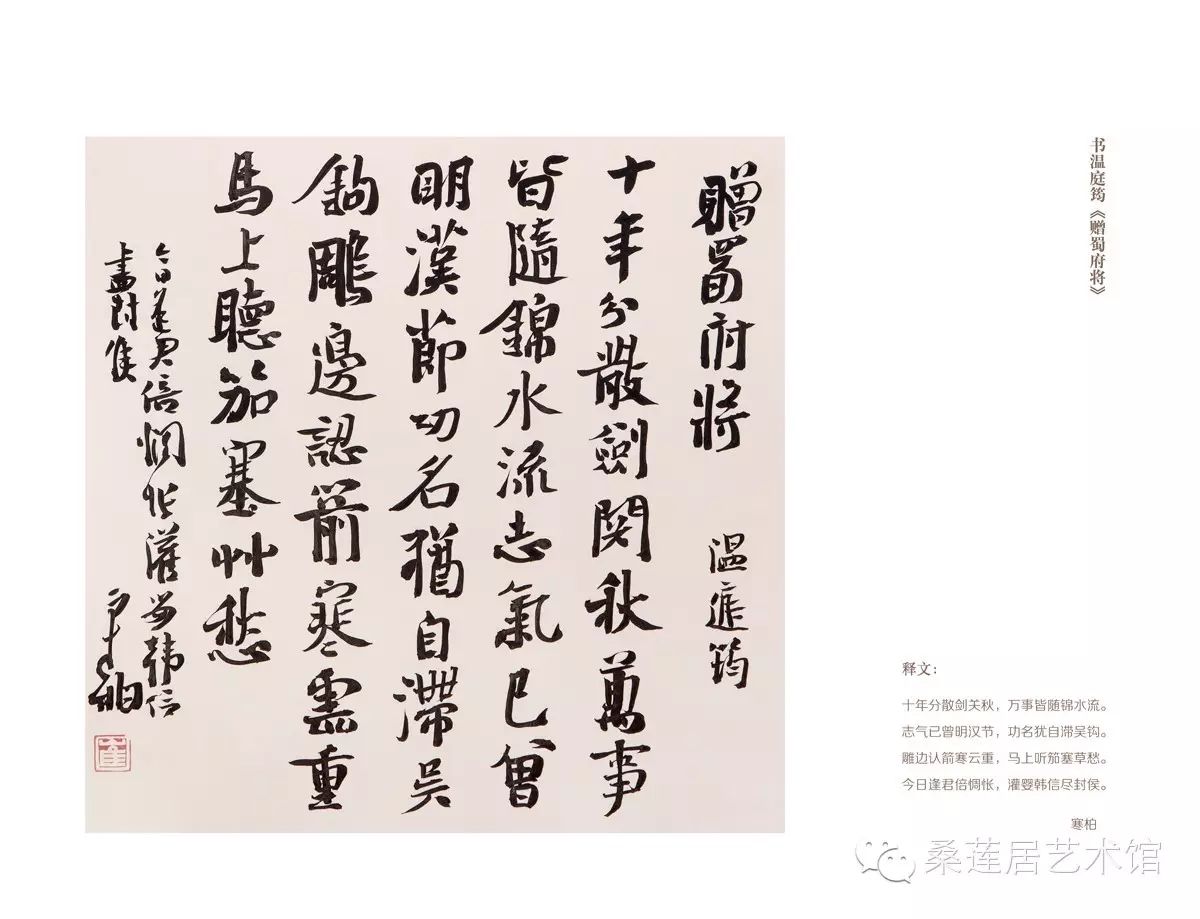 贈蜀府将
溫庭筠
十年分散劍関秋萬事
皆隨錦水流志氣已曾
明漢节功名猶自滯吴
鈎雕邊認箭寒雲重
馬上聽笳塞艸愁
今日逢君倍惆怅灌婴韩信
盡封侯
寒柏
书温庭筠《赠蜀府将》
释文：
十年分散剑关秋，万事皆随锦水流。
志气已曾明汉节，功名犹自滞吴钩。
雕边认箭寒云重，马上听笳塞草愁。
今日逢君倍惆怅，灌婴韩信尽封侯。
寒柏
桑莲居艺术馆